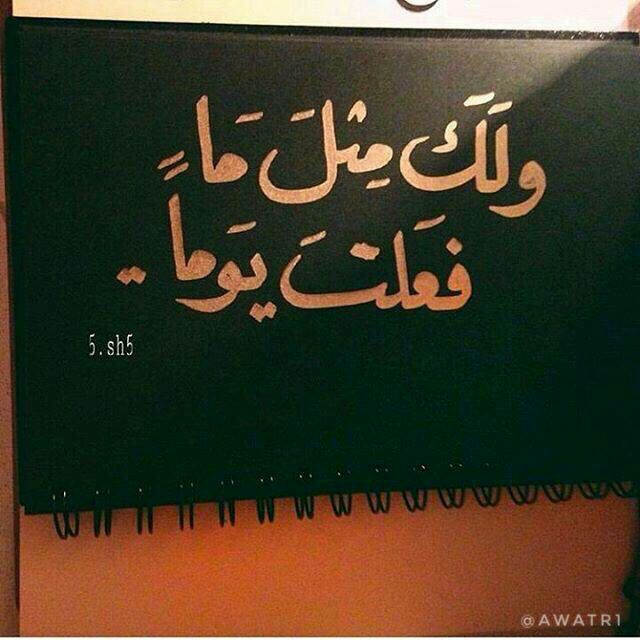 ولَكَ مِثلَ مَا
فعَلتَ يَوماً ..
5.sh5
@AWATR1